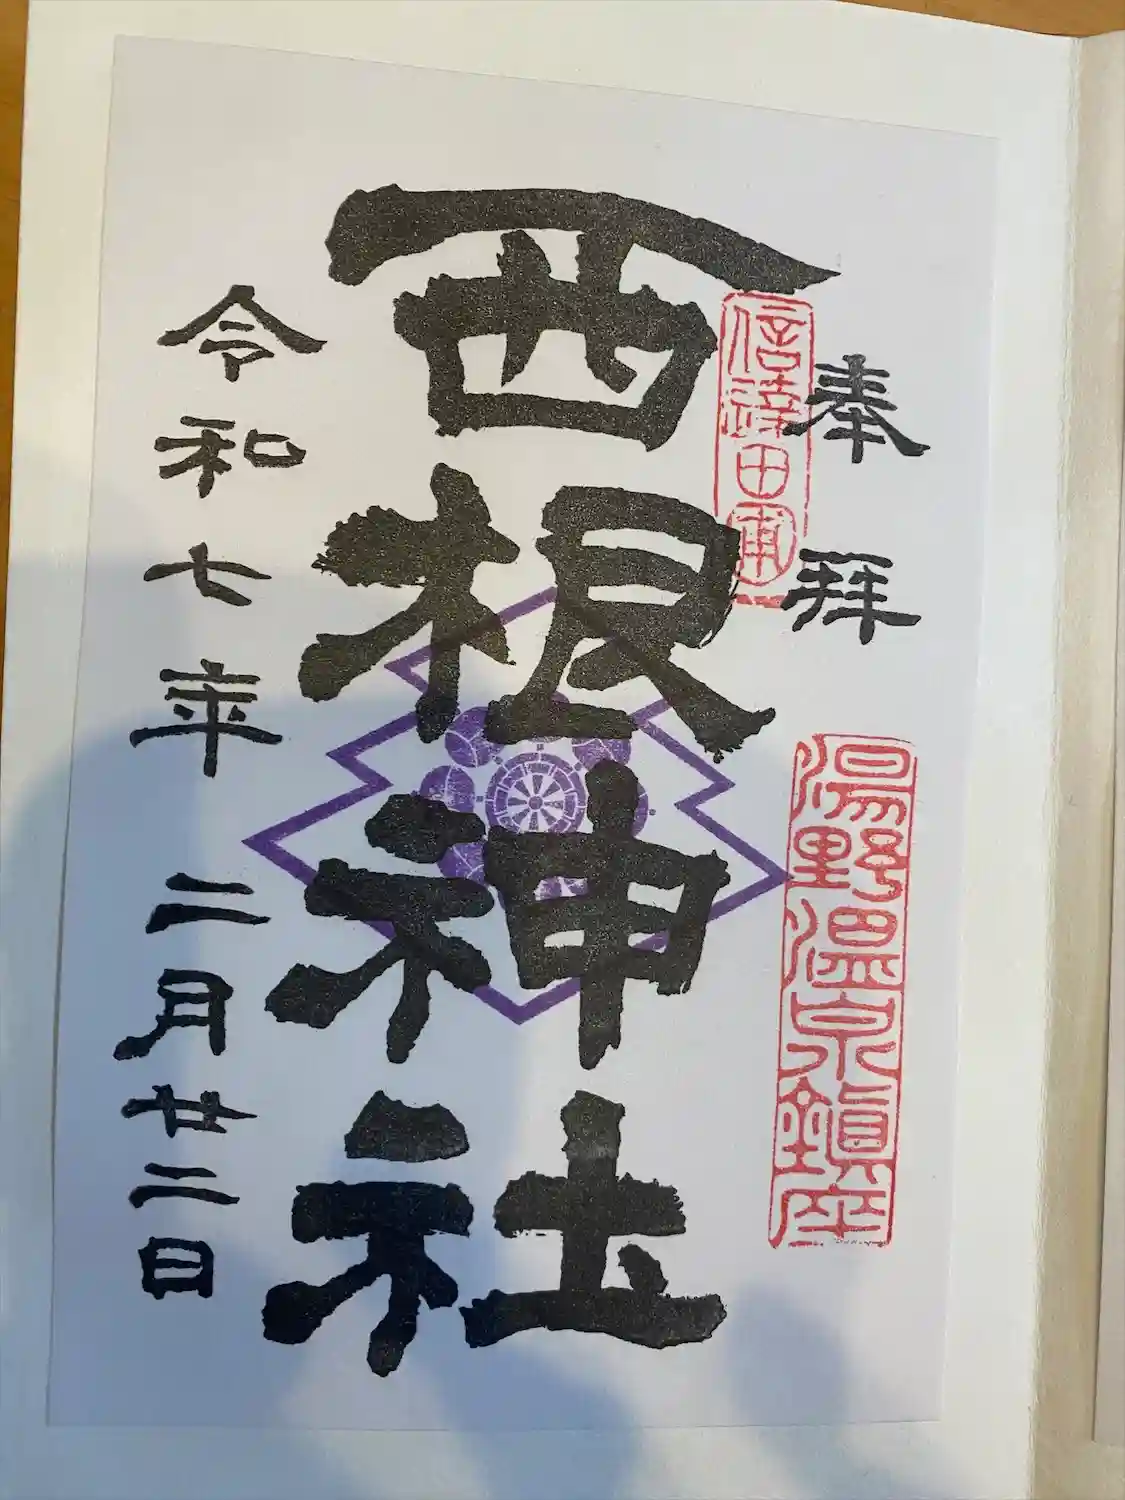 奉拝
湯野温泉鎮座
信達田
西根神社
令和七年 二月廿二日